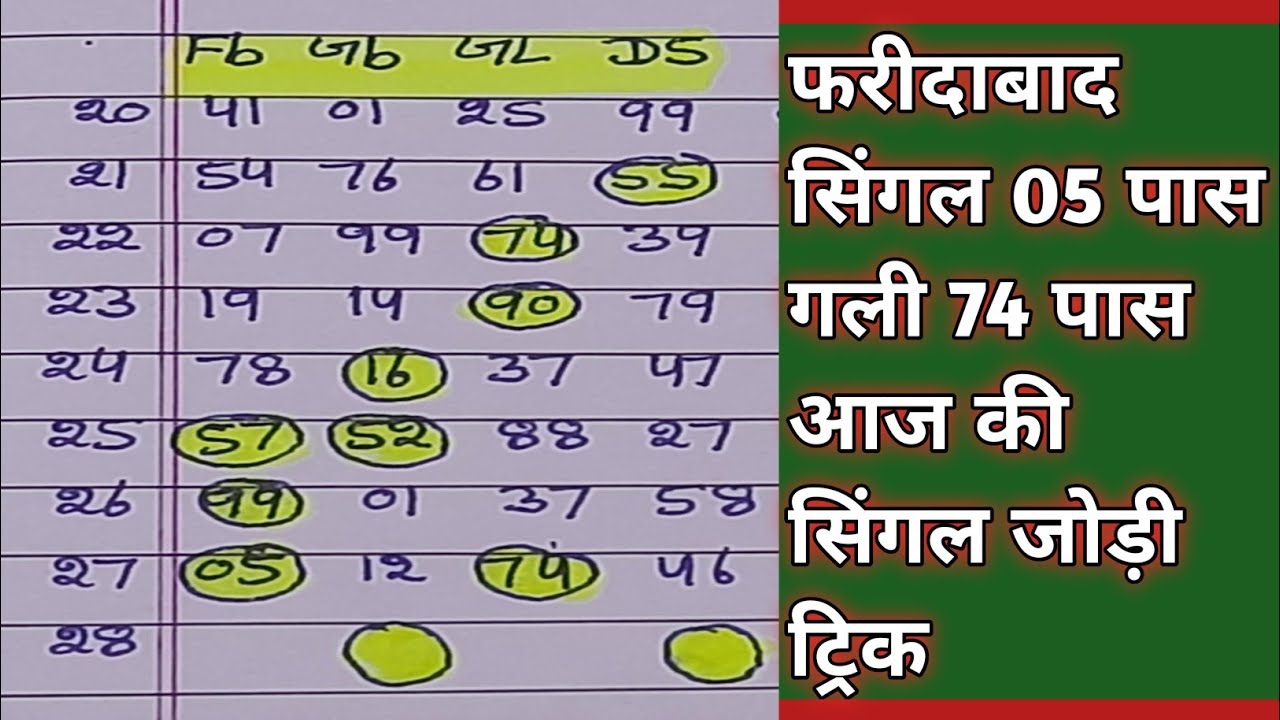 Fb Gb GL DS
20 41 01 25 99
21 54 76 61 55
22 07 99 74 39
23 19 14 90 79
24 78 16 37 47
25 57 52 88 27
26 99 01 37 58
27 05 12 74 46
28
फरीदाबाद
सिंगल 05 पास
गली 74 पास
आज की
सिंगल जोड़ी
ट्रिक